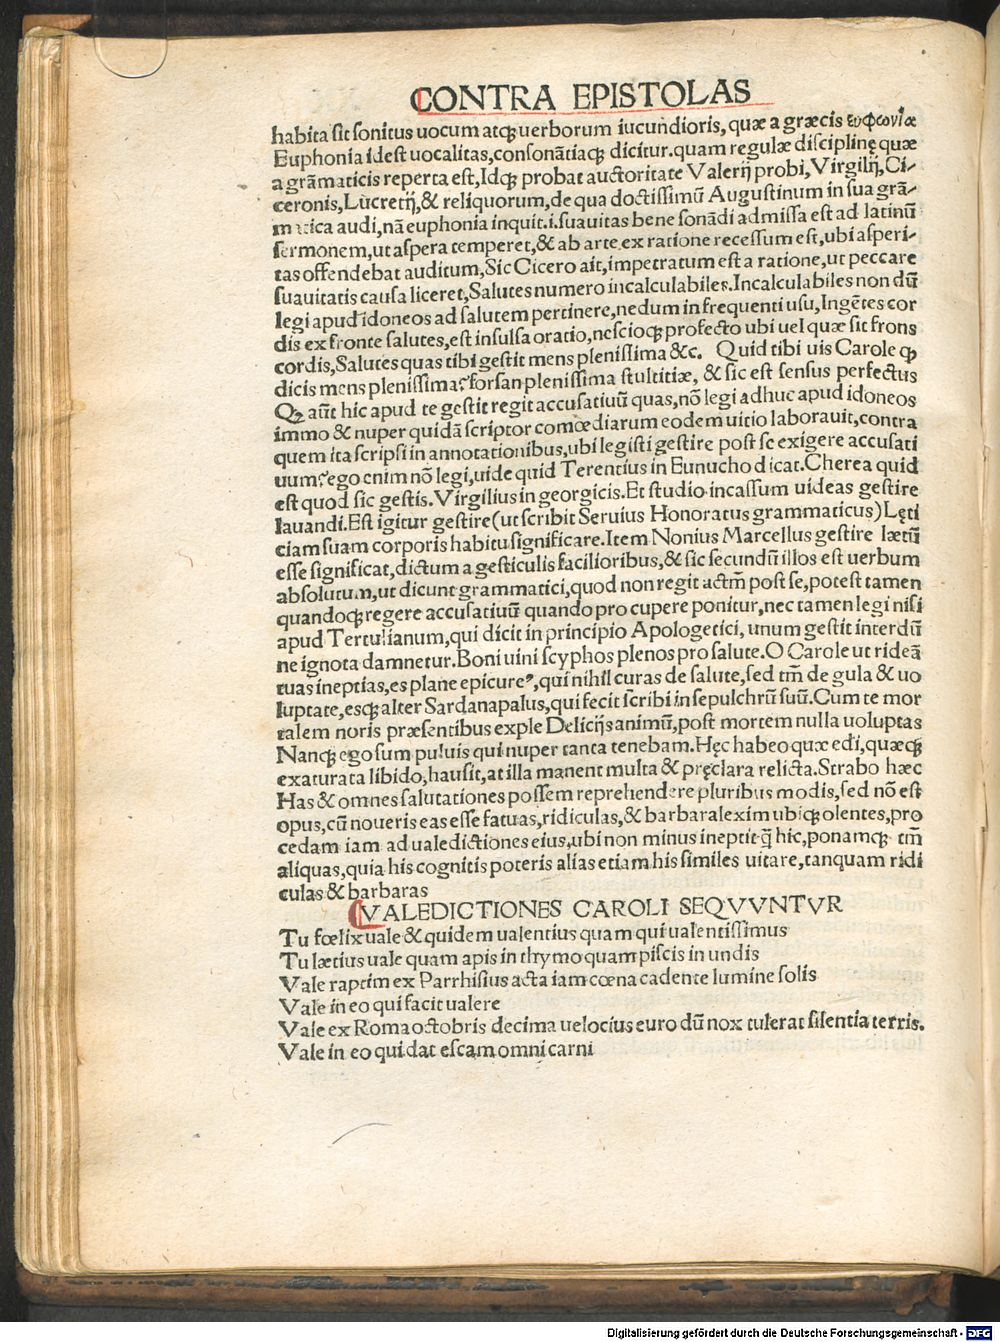 CONTRA EPISTOLAS
habita sit sonitus uocum atqꝫ uerborum iucundioris, quæ a græcis ευφωνία
Euphonia idest uocalitas, consonātiaqꝫ dicitur. quam regulæ disciplinę quæ
a grāmaticis reperta est, Idqꝫ probat auctoritate Valerij probi, Virgilij, Ci-
ceronis, Lucretij, & reliquorum, de qua doctissimū Augustinum in sua grā-
matica audi, nā euphonia inquit .i. suauitas bene sonādi admissa est ad latinū
sermonem, ut aspera temperet, & ab arte ex ratione recessum est, ubi asperi-
tas offendebat auditum, Sic Cicero ait, impetratum est a ratione, ut peccare
suauitatis causa liceret, Salutes numero incalculabiles. Incalculabiles non dū
legi apud idoneos ad salutem pertinere, nedum in frequenti usu, Ingētes cor
dis ex fronte salutes, est insulsa oratio, nescioqꝫ profecto ubi uel quæ sit frons
cordis, Salutes quas tibi gestit mens plenissima &c. Quid tibi uis Carole ꝙ
dicis mens plenissima? forsan plenissima stultitiæ, & sic est sensus perfectus
Qꝫ aūt hic apud te gestit regit accusatiuū quas, nō legi adhuc apud idoneos
immo & nuper quidā scriptor comœdiarum eodem uitio laborauit, contra
quem ita scripsi in annotationibus, ubi legisti gestire post se exigere accusati
uum? ego enim nō legi, uide quid Terentius in Eunucho dicat. Cherea quid
est quod sic gestis. Virgilius in georgicis. Et studio incassum uideas gestire
lauandi. Est igitur gestire (ut scribit Seruius Honoratus grammaticus) Lęti
ciam suam corporis habitu significare. Item Nonius Marcellus gestire lætū
esse significat, dictum a gesticulis facilioribus, & sic secundū illos est uerbum
absolutum, ut dicunt grammatici, quod non regit actm̄ post se, potest tamen
quandoqꝫ regere accusatiuū quando pro cupere ponitur, nec tamen legi nisi
apud Tertulianum, qui dicit in principio Apologetici, unum gestit interdū
ne ignota damnetur. Boni uini scyphos plenos pro salute. O Carole ut rideā
tuas ineptias, es plane epicureꝰ, qui nihil curas de salute, sed tm̄ de gula & uo
luptate, esqꝫ alter Sardanapalus, qui fecit scribi in sepulchrū suū. Cum te mor
talem noris præsentibus exple Delicijs animū, post mortem nulla uoluptas
Nanqꝫ ego sum puluis qui nuper tanta tenebam. Hęc habeo quæ edi, quæqꝫ
exaturata libido, hausit, at illa manent multa & pręclara relicta. Strabo hæc
Has & omnes salutationes possem reprehendere pluribus modis, sed nō est
opus, cū noueris eas esse fatuas, ridiculas, & barbaralexim ubiqꝫ olentes, pro
cedam iam ad ualedictiones eius, ubi non minus ineptit q̄ hic, ponamqꝫ tm̄
aliquas, quia his cognitis poteris alias etiam his similes uitare, tanquam ridi
culas & barbaras
VALEDICTIONES CAROLI SEQVVNTVR
Tu fœlix uale & quidem ualentius quam qui ualentissimus
Tu lætius uale quam apis in thymo quam piscis in undis
Vale raptim ex Parrhisius acta iam cœna cadente lumine solis
Vale in eo qui facit ualere
Vale ex Roma octobris decima uelocius euro dū nox tulerat silentia terris.
Vale in eo qui dat escam omni carni
Digitalisierung gefördert durch die Deutsche Forschungsgemeinschaft - DFG